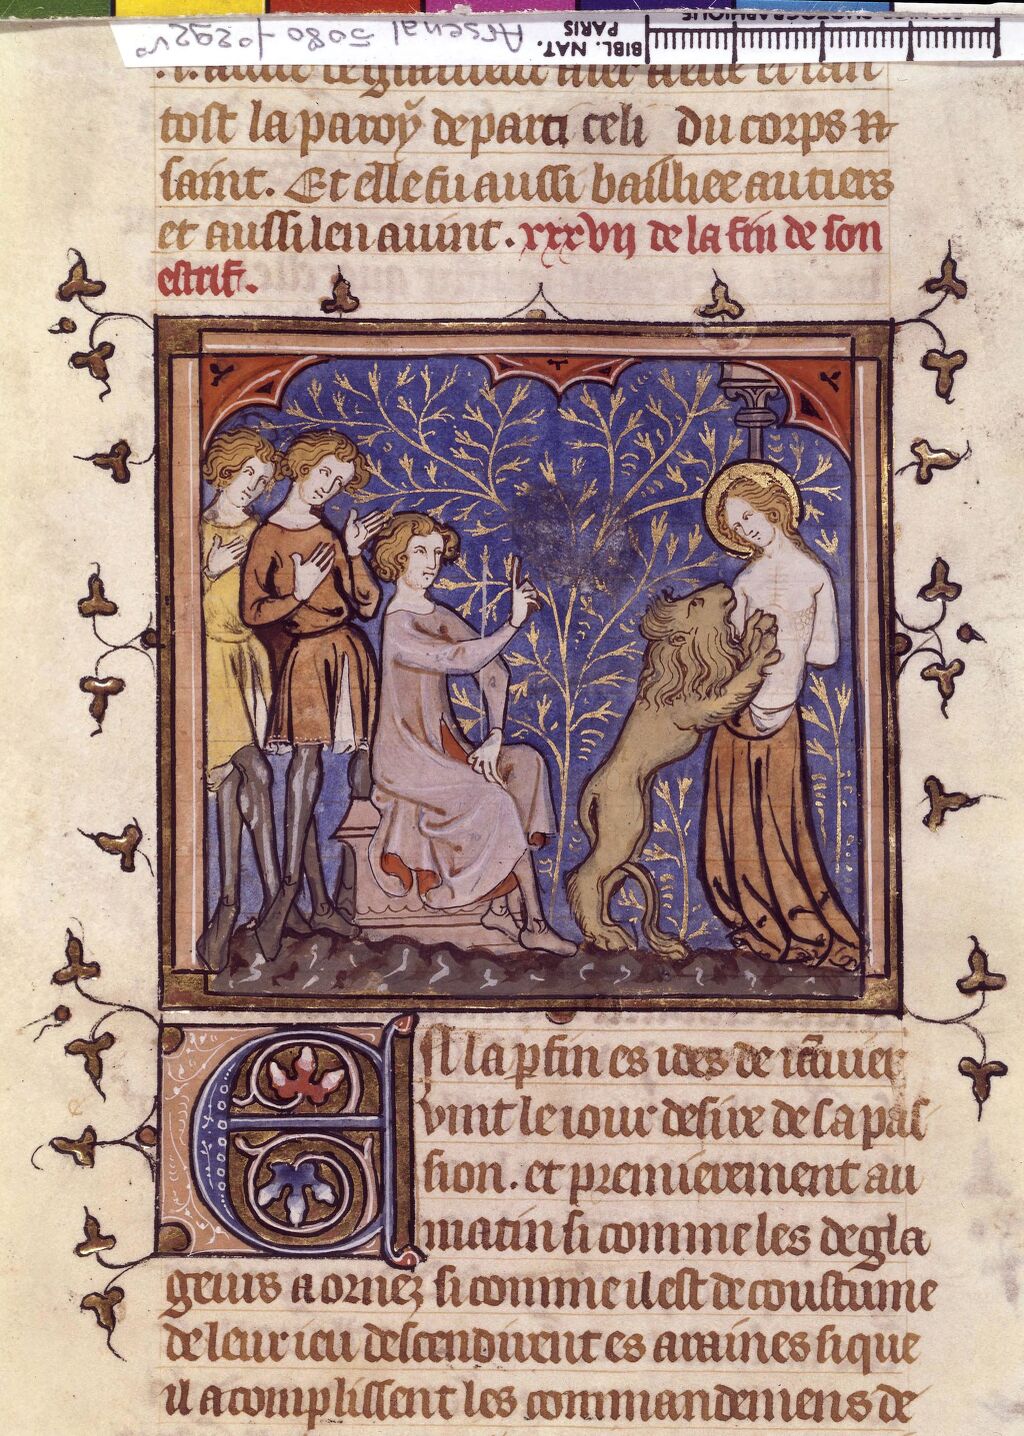 Arsenal 5080 f° 292 v°
BIBL. NAT.
PARIS
tost la paroy departi celi du corps
saint. Et elle fu aussi bailliee au tiers
et aussi len avint. xxxvii de la fin de son
estrif.
En la parfin es ides de
vint le iour desire de sa pas
sion. et premierement au
matin si comme les degla
geurs aornez si comme il est de coustume
de leur ieu descendirent es araines si que
il acomplissent les commandemens de